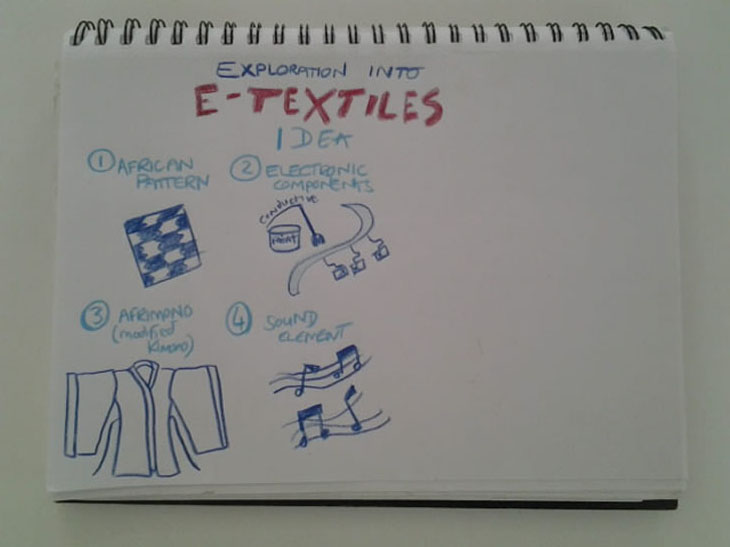 EXPLORATION INTO
E-TEXTILES
IDEA
1 AFRICAN
PATTERN
2 ELECTRONIC
COMPONENTS
CONDUCTIVE
PAINT
3 AFRIMONO
(modified
Kimono)
4 SOUND
ELEMENT